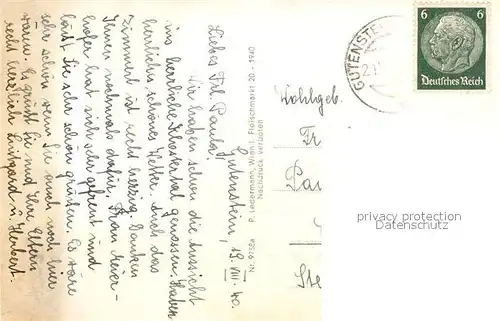 Gutenstein, 19. VIII. 40.
Liebes Frl. Paula!
Wir haben schon die Aussicht
ins herrliche Klostertal genossen. Haben
herrliches schönes Wetter. Auch das
Zimmerl ist recht herzig. Danken
Ihnen nochmals dafür. Frau Meier-
hofer hat sich sehr gefreut und
lässt Sie sehr schön grüßen. Es wäre
sehr schön wenn Sie auch noch hier
wären. Es grüßt Sie und Ihre Eltern
recht herzlich Luitgard u. Herbert.
P. Ledermann, Wien I, Fleischmarkt 20 - 1940
Nachdruck verboten
Nr. 9238a
GUTENSTE
6 6
Deutsches Reich
Wohlgeb.
Fr
Pau
Ste
privacy protection
Datenschutz